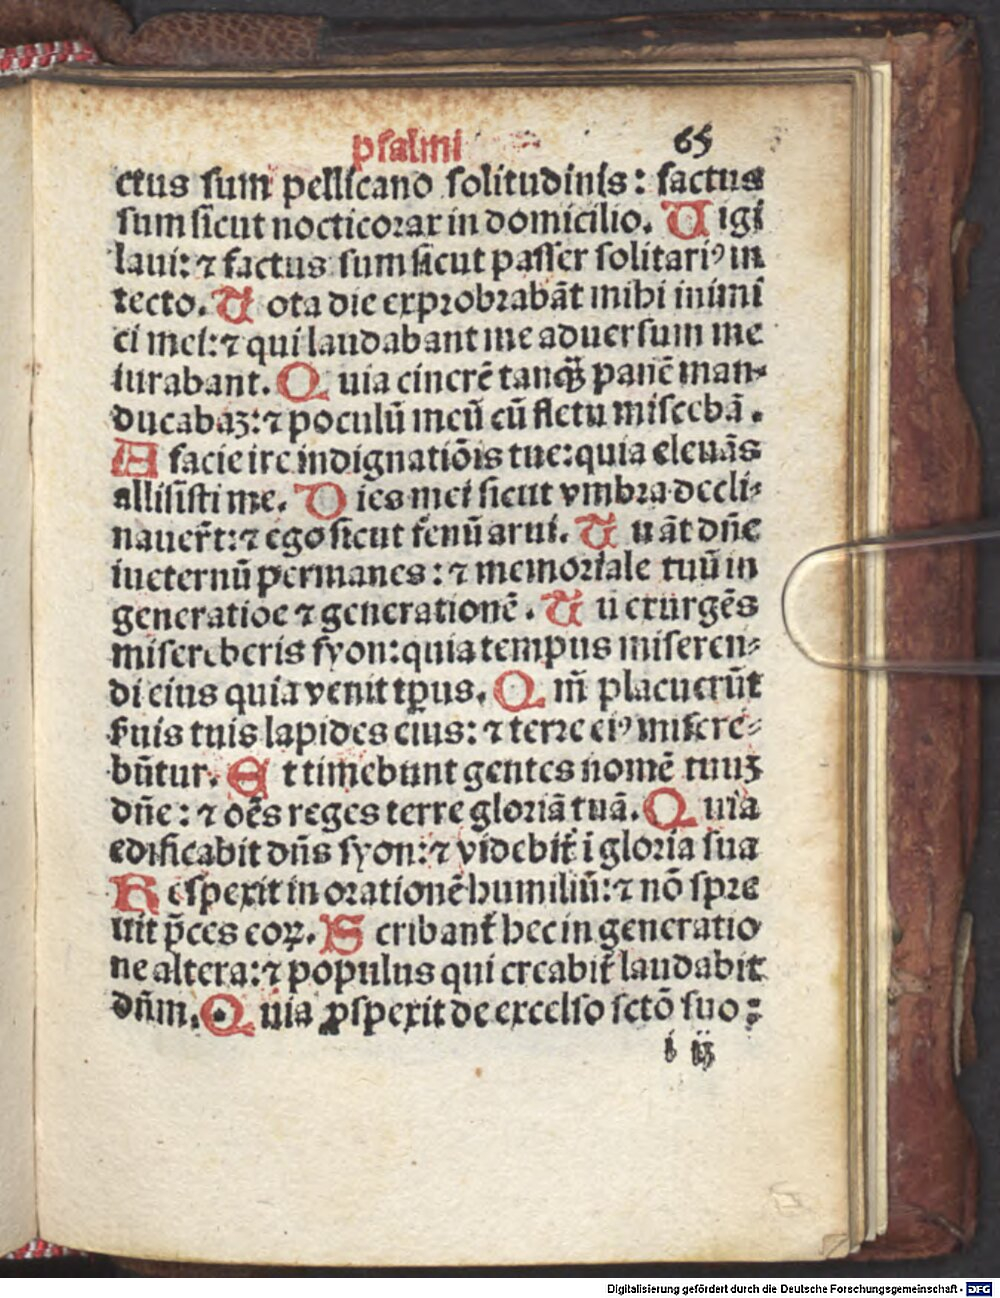 psalmi 65
ctus sum pellicano solitudinis: factus
sum sicut nocticorax in domicilio. Uigi
laui: ⁊ factus sum sicut passer solitariꝰ in
tecto. Tota die exprobrabāt mihi inimi
ci mei: ⁊ qui laudabant me aduersum me
iurabant. Quia cinerē tanqꝫ panē man⸗
ducabaꝫ: ⁊ poculū meū cū fletu miscebā.
A facie ire indignatiōis tue: quia eleuās
allisisti me. Dies mei sicut vmbra decli⸗
nauer̄t: ⁊ ego sicut fenū arui. Tu āt dn̄e
ineternū permanes: ⁊ memoriale tuū in
generatioe ⁊ generationē. Tu exurgēs
misereberis syon: quia tempus miseren⸗
di eius quia venit tp̄us. Qm̄ placuerūt
s̄uis tuis lapides eius: ⁊ terre eiꝰ misere⸗
būtur. Et timebunt gentes nomē tuuꝫ
dn̄e: ⁊ oēs reges terre gloriā tuā. Quia
edificabit dn̄s syon: ⁊ videbit̄ ī gloria sua
Respexit in orationē humiliū: ⁊ nō spre
uit p̄ces eoꝝ. Scribant̄ hec in generatio
ne altera: ⁊ populus qui creabit̄ laudabit
dn̄m. Quia ꝓspexit de excelso sctō suo:
i ij
Digitalisierung gefördert durch die Deutsche Forschungsgemeinschaft - DFG